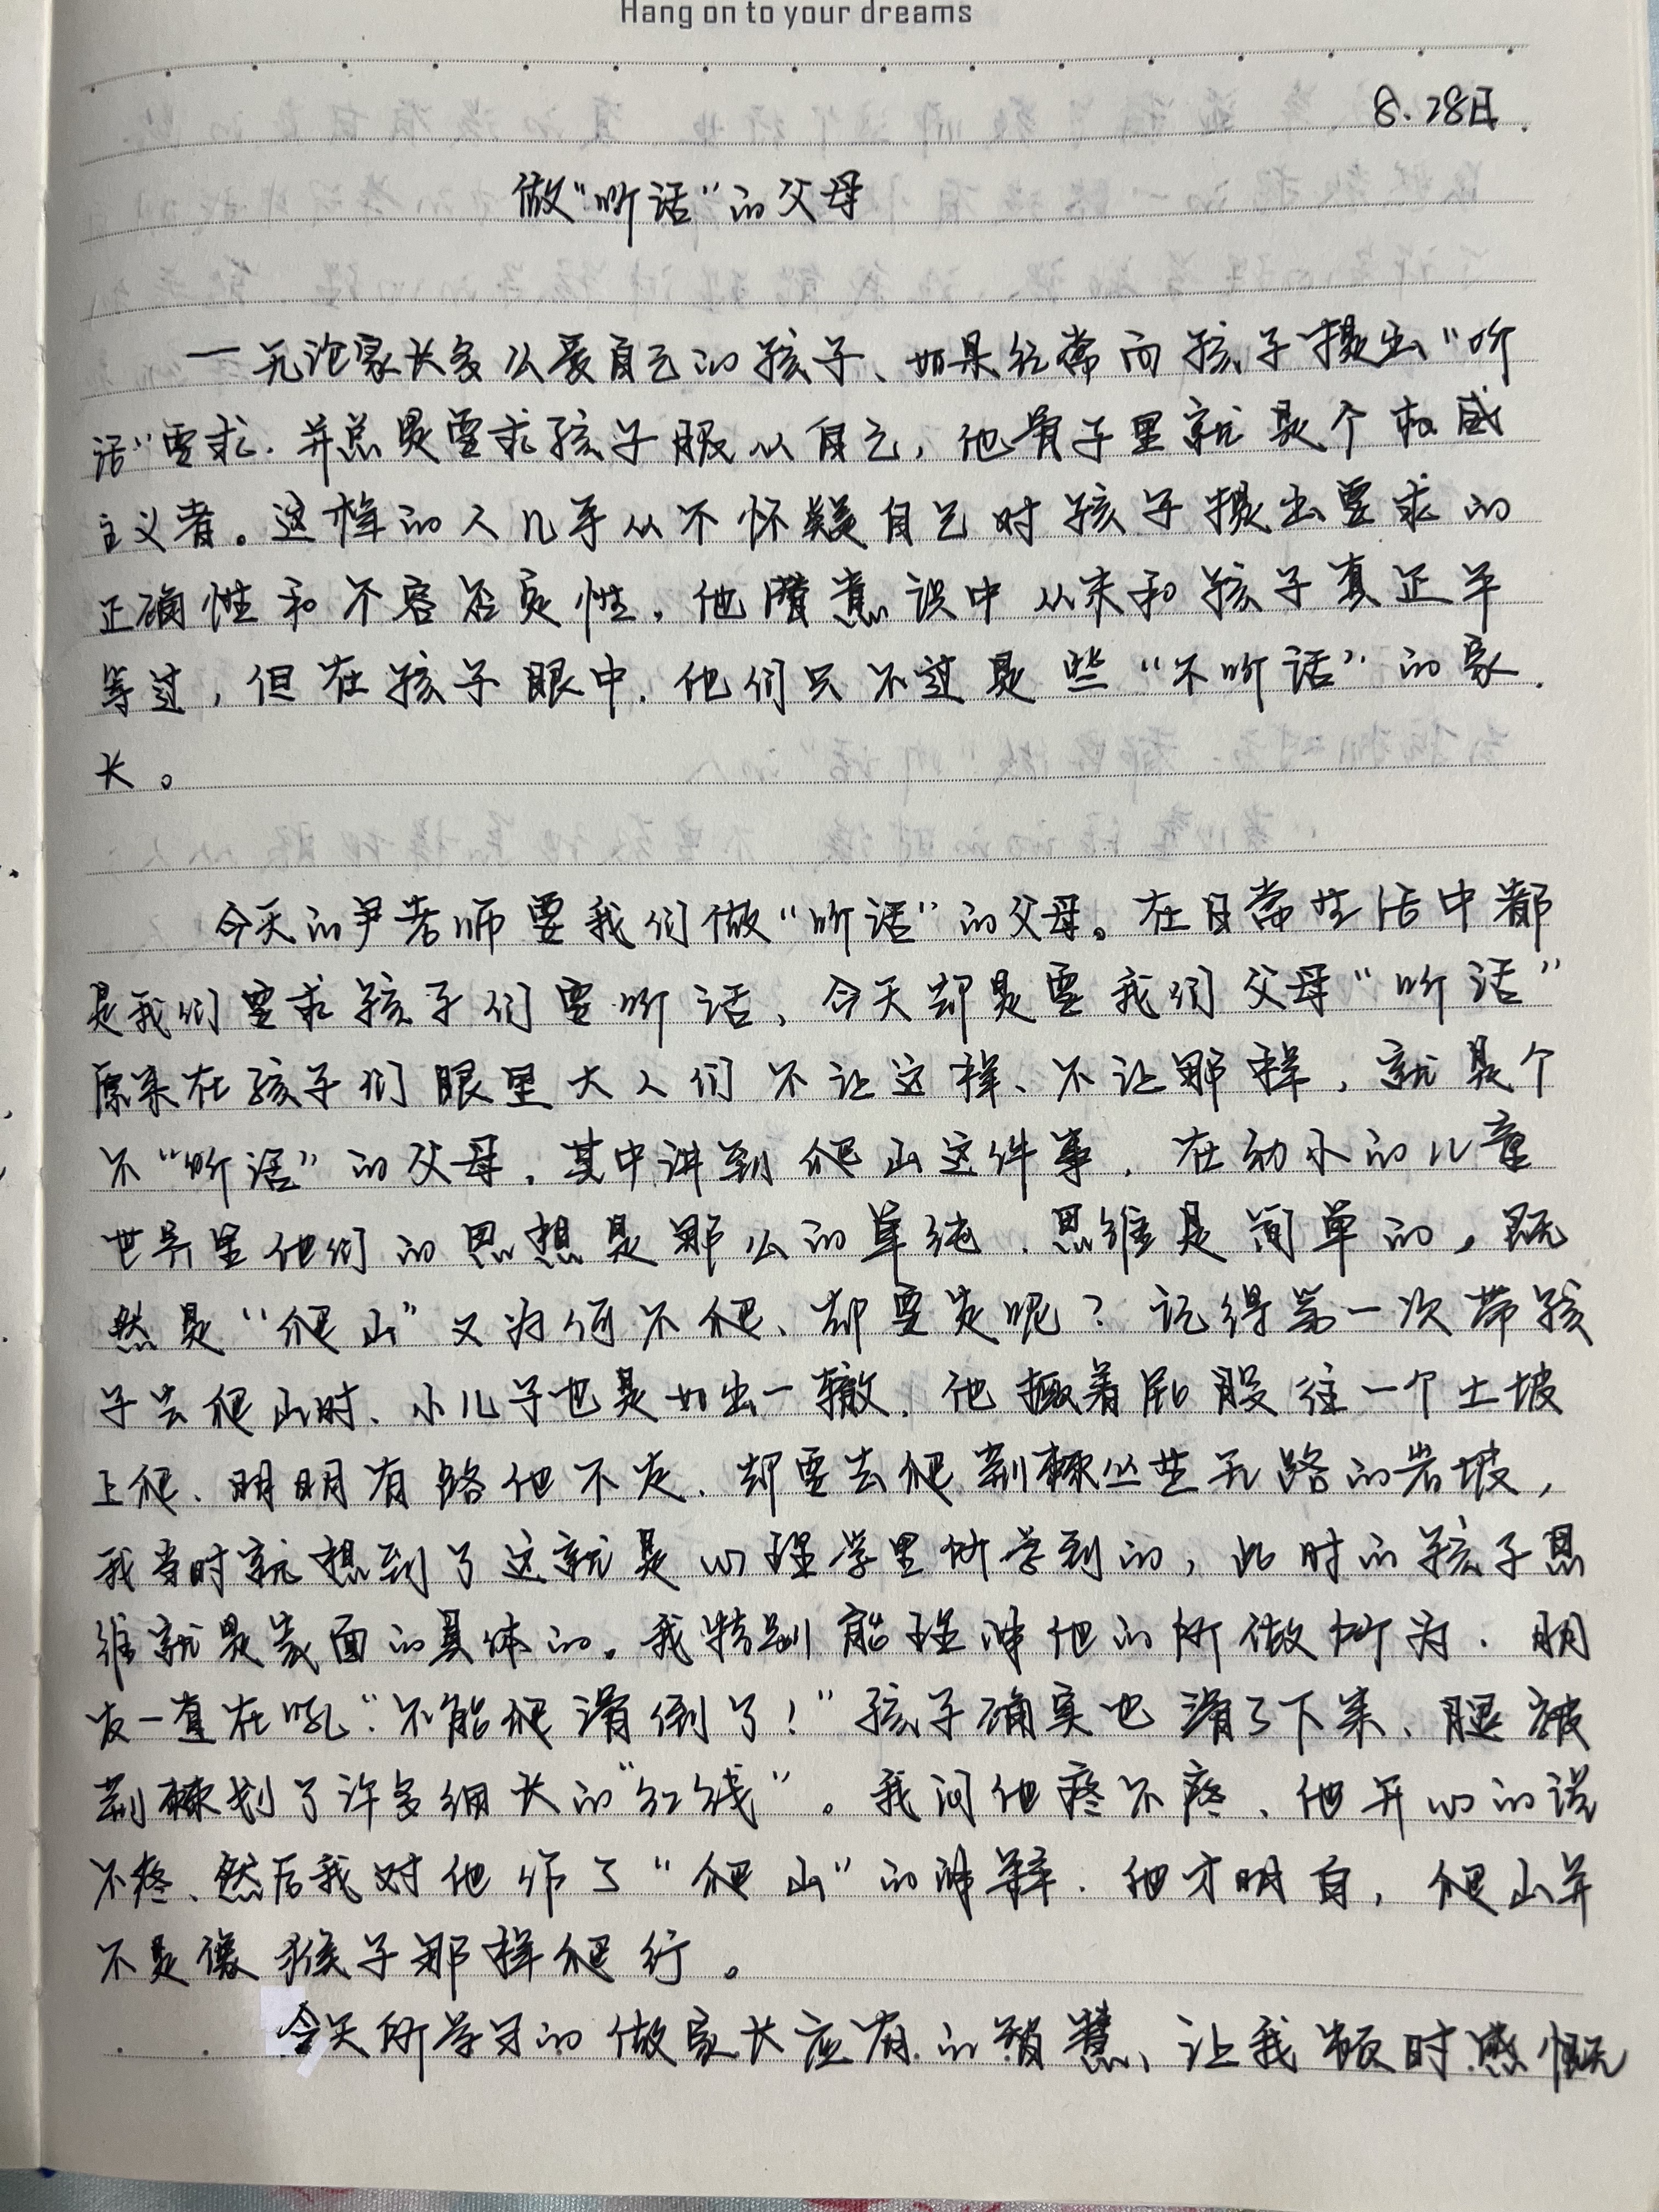 Hang on to your dreams
8.28日.
做“听话”的父母
一无论家长多么爱自己的孩子、如果经常向孩子提出“听
话”要求.并总是要求孩子服从自己,他骨子里就是个权威
主义者。这样的人几乎从不怀疑自己对孩子提出要求的
正确性和不容否定性,他潜意识中从未和孩子真正平
等过,但在孩子眼中.他们只不过是些“不听话”的家
长。
今天的尹老师要我们做“听话”的父母。在日常生活中都
是我们要求孩子们要听话、今天却是要我们父母“听话”
原来在孩子们眼里大人们不让这样、不让那样,就是个
不“听话”的父母.其中讲到爬山这件事.在幼小的儿童
世界里他们的思想是那么的单纯.思维是简单的,既
然是“爬山”又为何不爬、却要走呢?记得第一次带孩
子去爬山时、小儿子也是如出一辙.他撅着屁股往一个土坡
上爬、明明有路他不走.却要去爬荆棘丛生无路的岩坡,
我当时就想到了这就是心理学里所学到的,此时的孩子思
维就是表面的具体的。我特别能理解他的所做所为.朋
友一直在吼“不能爬滑倒了!”孩子确实也滑了下来、腿被
荆棘划了许多细长的“红线”。我问他疼不疼、他开心的说
不疼、然后我对他作了“爬山”的解释.他才明白,爬山并
不是像猴子那样爬行。
今天所学习的做家长应有的智慧、让我顿时感慨